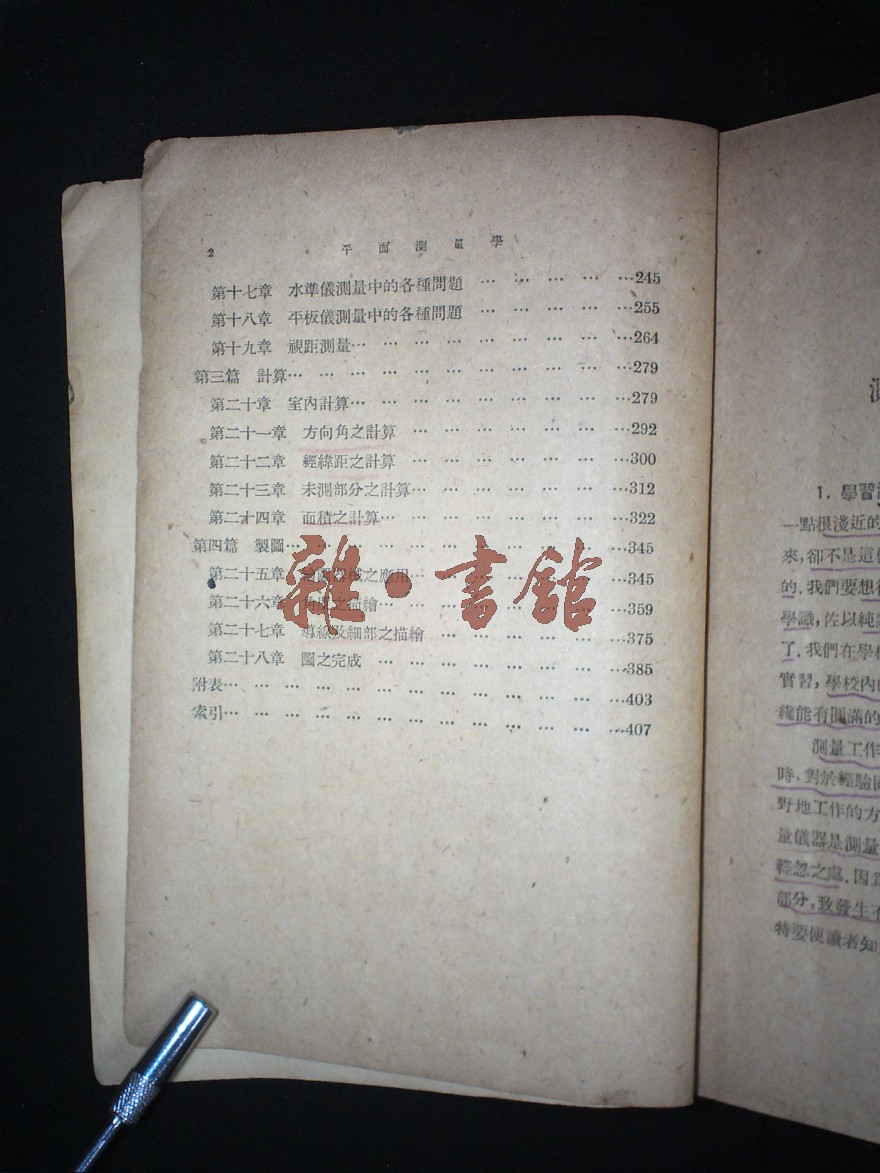 2 平面測量學
第十七章 水準儀測量中的各種問題 … … … … …245
第十八章 平板儀測量中的各種問題 … … … … …255
第十九章 視距測量… … … … … … … … …264
第三篇 計算… … … … … … … … … … …279
第二十章 室內計算… … … … … … … … …279
第二十一章 方向角之計算 … … … … … … …292
第二十二章 經緯距之計算 … … … … … … …300
第二十三章 未測部分之計算… … … … … … …312
第二十四章 面積之計算… … … … … … … …322
第四篇 製圖… … … … … … … … … … …345
第二十五章 繪圖器械之應用… … … … … … …345
第二十六章 角度之描繪… … … … … … … …359
第二十七章 導線及細部之描繪 … … … … … …375
第二十八章 圖之完成 … … … … … … … …385
附表… … … … … … … … … … … … …403
索引… … … … … … … … … … … … …407
雜·書館
測
1. 學習
一點根淺近的
來,卻不是這
的.我們要想
學識,佐以純
了.我們在學
實習,學校內
纔能有圓滿的
測量工作
時,對於經驗
野地工作的方
量儀器是測量
輕忽之處.因
部分,致發生
特要使讀者知